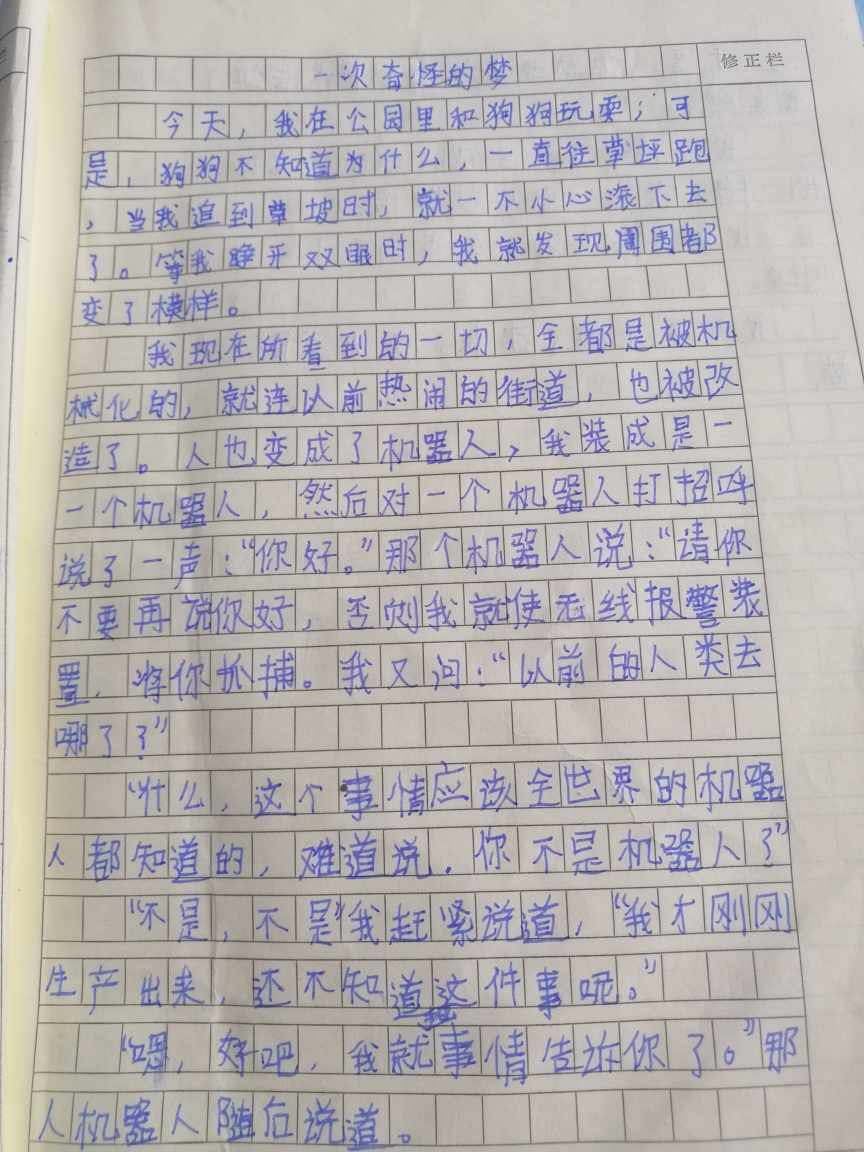 修正栏
一次奇怪的梦
今天，我在公园里和狗狗玩耍；可
是，狗狗不知道为什么，一直往草坪跑
，当我追到草坡时，就一不小心滚下去
了。等我睁开双眼时，我就发现周围都
变了模样。
我现在所看到的一切，全都是被机
械化的，就连以前热闹的街道，也被改
造了。人也变成了机器人，我装成是一
一个机器人，然后对一个机器人打招呼
说了一声：“你好。”那个机器人说：“请你
不要再说你好，否则我就使无线报警装
置，将你抓捕。我又问：“以前的人类去
哪了？”
“什么，这个事情应该全世界的机器
人都知道的，难道说，你不是机器人？”
“不是，不是”我赶紧说道，“我才刚刚
生产出来，还不知道这件事呢。”
“嗯，好吧，我就事情告诉你了。”那
人机器人随后说道。